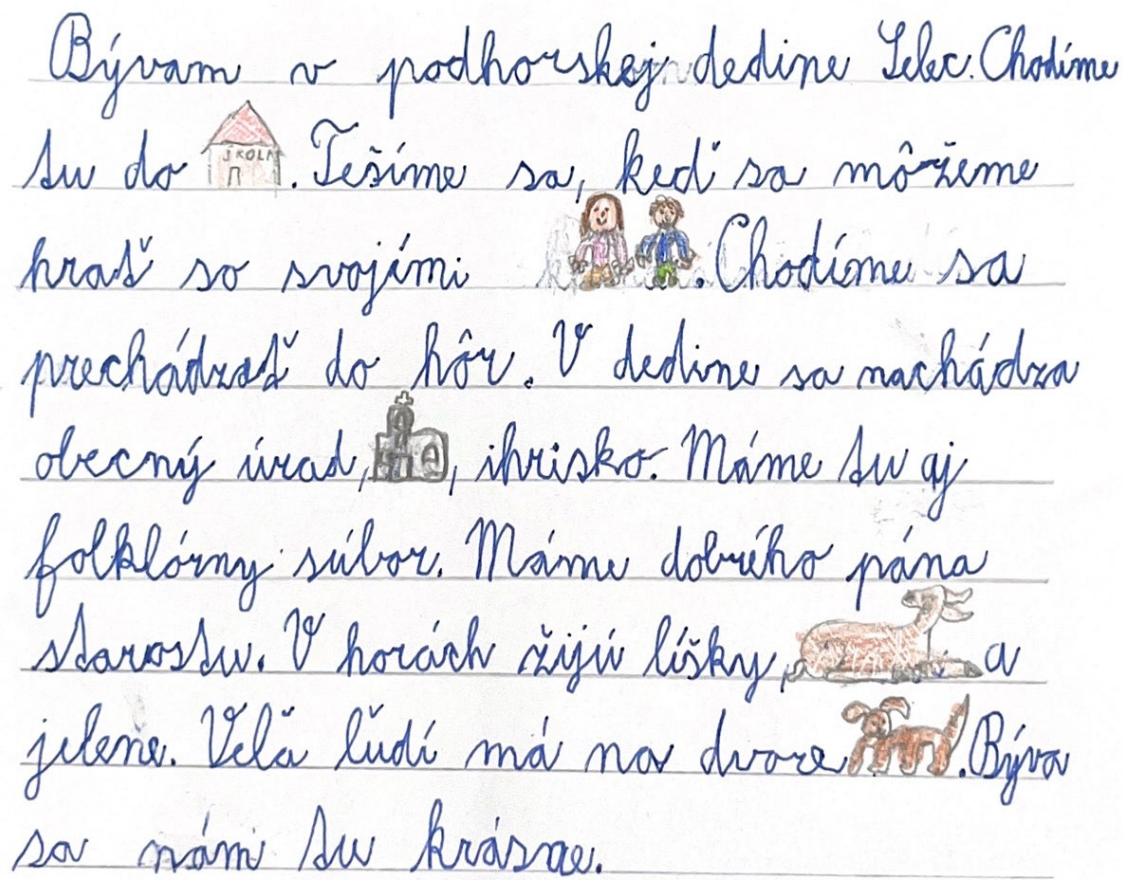 Bývam v podhorskej dedine Selec. Chodíme
tu do ŠKOLA. Tešíme sa, keď sa môžeme
hrať so svojími . Chodíme sa
prechádzať do hôr. V dedine sa nachádza
obecný úrad, , ihrisko. Máme tu aj
folklórny súbor. Máme dobrého pána
starostu. V horách žijú líšky, a
jelene. Veľa ľudí má na dvore . Býva
sa nám tu krásne.